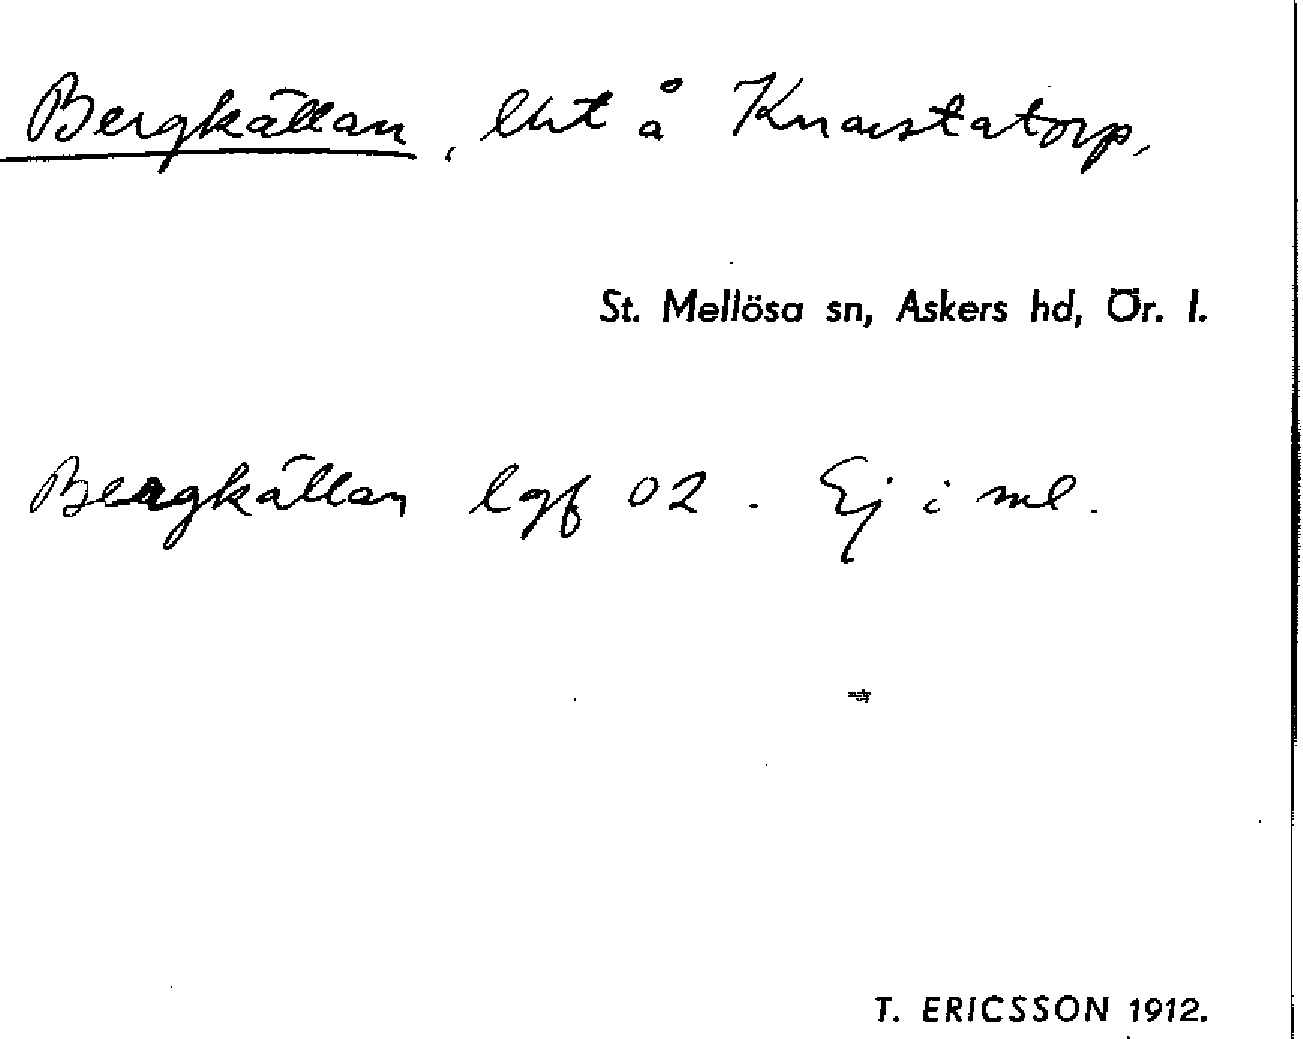 Bergkällan, lht å Knaestatorp,
St. Mellösa sn, Askers hd, Ör. l.
Bergkällan lgf 02. Ej i ml.
T. ERICSSON 1912.